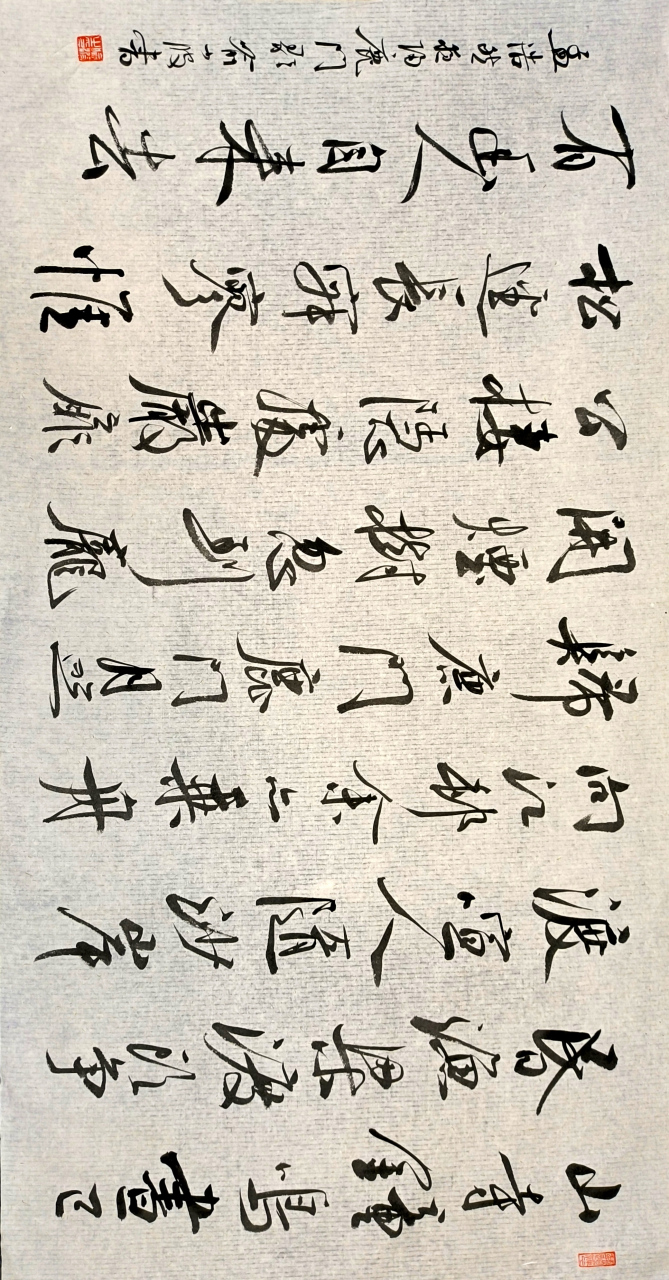 山寺鐘鳴晝已
昏漁梁渡頭爭
渡喧人隨沙岸
向江村余亦乘舟
歸鹿門鹿門月照
開煙樹忽到龐
公棲隱處巖扉
松逕長寂寥惟
有幽人自來去
孟浩然夜歸鹿門歌 書